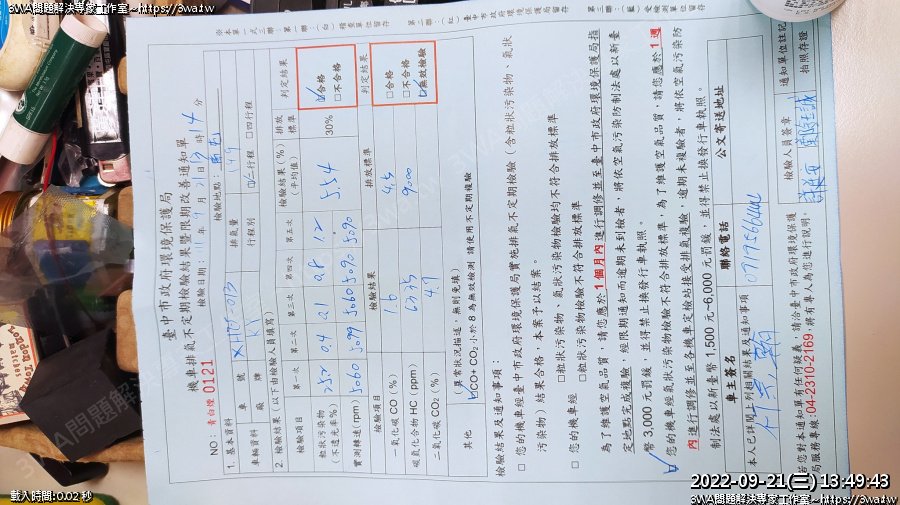 3WA問題解決專家工作室~https://3wa.tw
3WA問題解決專家工作室~https://3wa.tw
※本單一式三聯 第一聯：(白)稽查單位留存 第二聯：(紅)臺中市政府環境保護局留存 第三聯：(藍)受檢測單位留存
臺中市政府環境保護局
機車排氣不定期檢驗結果暨限期改善通知單
NO：青白煙 0121
檢驗日期：111年9月21日13時14分
1. 基本資料
檢驗地點：
車輛資料
車號
排氣量
149
廠牌
KY
行程別
二行程 □四行程
2. 檢驗結果 (以下由檢驗人員填寫)
檢驗項目
第一次
第二次
第三次
第四次
第五次
檢驗結果(%)(平均值)
排放標準
判定結果
粒狀污染物(不透光率%)
25.2
0.4
0.8
1.2
5.54
30%
☑合格
□不合格
實測轉速(rpm)
5060
5099
5060
5090
5090
檢驗項目
檢驗結果
排放標準
判定結果
一氧化碳 CO (%)
1.6
4.5
□合格
□不合格
☑無效檢驗
碳氫化合物 HC (ppm)
6335
9000
二氧化碳 CO₂ (%)
4.7
其他
(異常狀況描述，無則免填)
☑CO+ CO₂ 小於 8 為無效檢測 請使用不定期複驗
檢驗結果及通知事項：
□您的機車經臺中市政府環境保護局實施排氣不定期檢驗（含粒狀污染物、氣狀
污染物）結果合格，本案予以結案。
□您的機車經 □粒狀污染物、氣狀污染物檢驗均不符合排放標準
□粒狀污染物檢驗不符合排放標準
為了維護空氣品質，請您應於1個月內進行調修並至臺中市政府環境保護局指
定地點完成複驗，經限期通知而逾期未到檢者，將依空氣污染防制法處以新臺
幣 3,000 元罰鍰，並得禁止換發行車執照。
☑您的機車經氣狀污染物檢驗不符合排放標準，為了維護空氣品質，請您應於1週
內進行調修並至各機車定檢站接受排氣複驗，逾期未複驗者，將依空氣污染防
制法處以新臺幣 1,500 元~6,000 元罰鍰，並得禁止換發行車執照。
車主簽名
聯絡電話
公文寄送地址
本人已詳閱下列相關結果及通知事項
若您對本通知單有任何疑義，請洽臺中市政府環境保護
局服務專線：04-2310-2169，將有專人為您進行說明。
檢驗人員簽章
通知單位註記
拍照存證
2022-09-21(三) 13:49:43
載入時間:0.02 秒
3WA問題解決專家工作室~https://3wa.tw
3WA問題解決專家工作室~https://3wa.tw